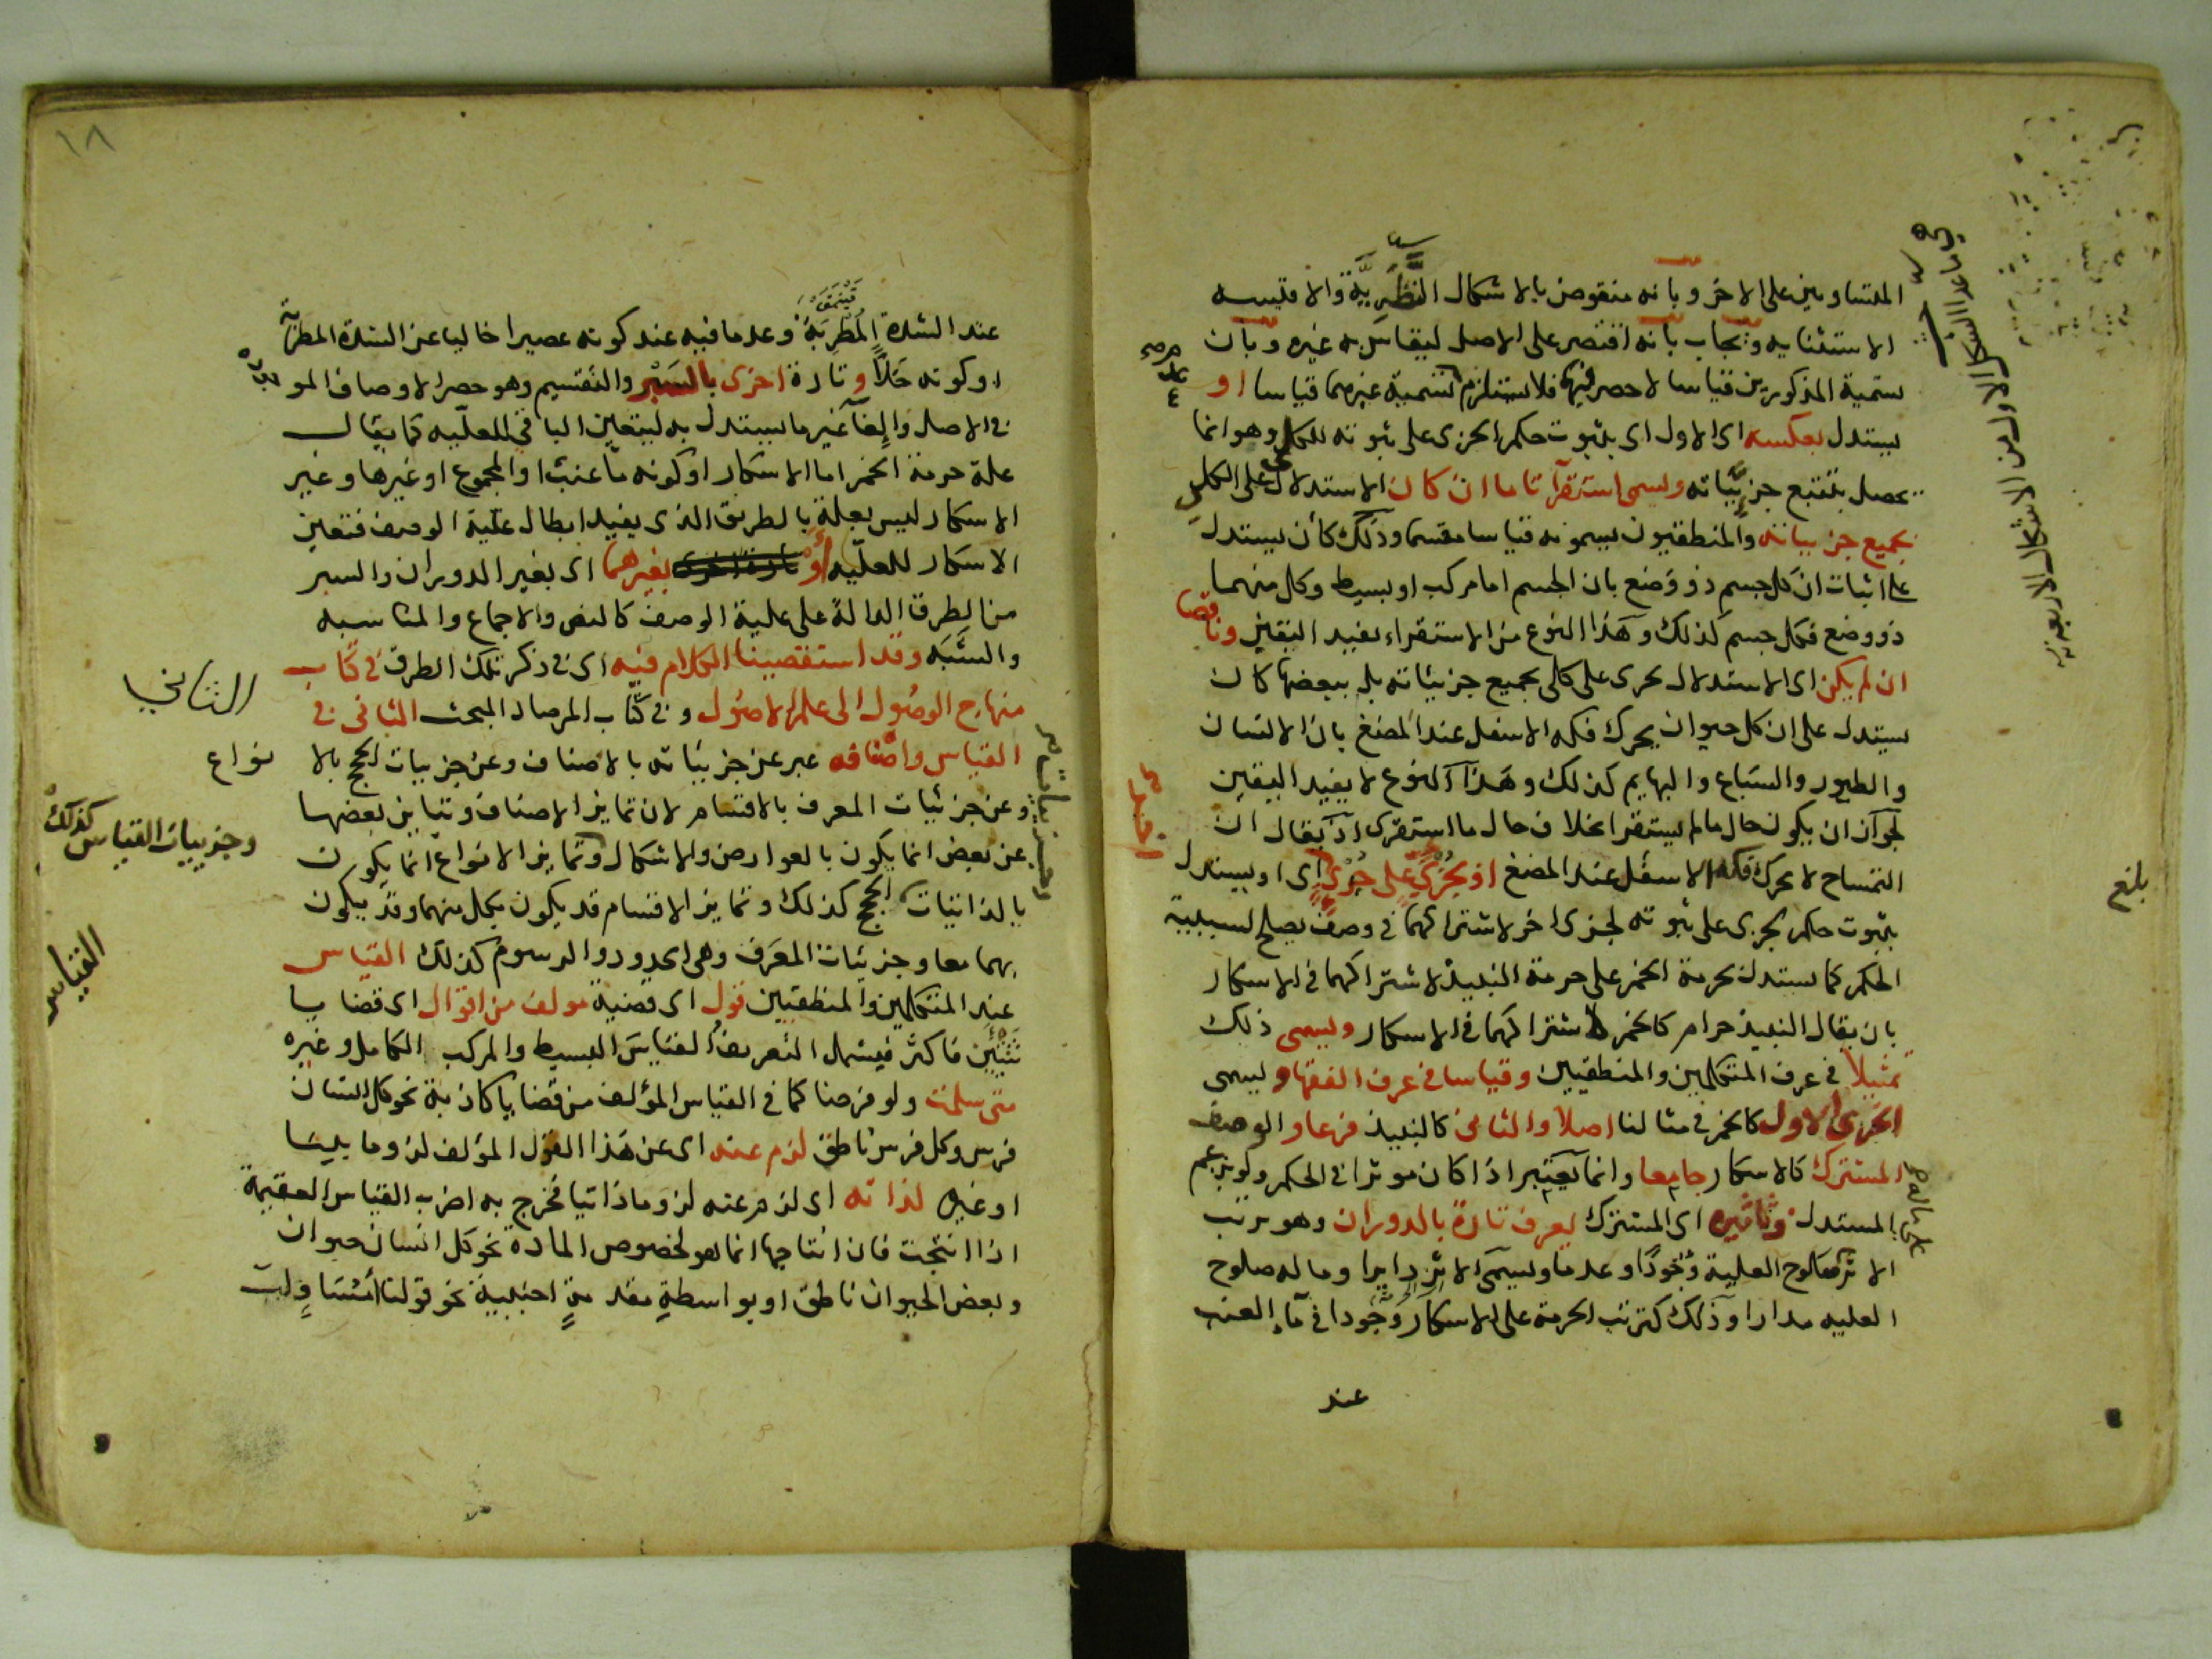 المتساويين على الاخر وبانه منقوض بالاشكال النظرية والاقيسه
الاستثنائيه ويجاب بانه اقتصر على الاصل ليقاس به غيره وبان
تسمية المذكورين قياسا لا حصر فيهما فلا يستلزم تسمية غيرهما قياسا او
يستدل بعكسه اى الاول اى بثبوت حكم الجزى على ثبوته للكلى وهو انما
يحصل بتتبع جزيّياته ويسمى استقرآ تاما ان كان الاستدلال على الكلى
بجميع جزيياته والمنطقيون يسمونه قياسا مقسما وذلك كأن يستدل
على اثبات ان كل جسم ذو وضع بان الجسم اما مركب او بسيط وكل منهما
ذو وضع فكل جسم كذلك وهذا النوع من الاستقراء يفيد اليقين وناقصا
ان لم يكن اى الاستدلال بحرى على كلى بجميع جزيئاته بل ببعضها كان
يستدل على ان كل حيوان يحرك فكه الاسفل عند المضغ بان الانسان
والطيور والسباع والبهايم كذلك وهذا النوع لا يفيد اليقين
لجواز ان يكون حال ما لم يستقرا بخلاف حال ما استقرى اذ يقال ان
التمساح لا يحرك فكه الاسفل عند المضغ او بجزئى على جزئى اى او يستدل
بثبوت حكم لجزى على ثبوته لجزى اخر لاشتراكهما في وصف يصلح لسببية
الحكم كما يستدل بحرمة الخمر على حرمة النبيذ لاشتراكهما في الاسكار
بان يقال النبيذ حرام كالخمر لاشتراكهما في الاسكار ويسمى ذلك
تمثيلا في عرف المتكلمين والمنطقيين وقياسا في عرف الفقها ويسمى
الجزى الاول كالخمر في مثالنا اصلا والثاني كالنبيذ فرعا والوصف
المشترك كالاسكار جامعا وانما يعتبر اذا كان موثرا في الحكم ولو بزعم
المستدل وتاثيره اى المشترك يعرف تارة بالدوران وهو ترتب
الاثر على ماله صلوح العلية وُجُودًا وعدما ويسمى الاثر دايرا وما له صلوح
العليه مدارا وذلك كترتب الحرمة على الاسكار وجودا في مآء العنب
عند
بلغ
من الاشكال الاربعة
١٨
عند الشدة المُطْرِبَةِ وعدما فيه عند كونه عصيرا خاليا عن الشدة المطربة
او كونه خَلًّا وتارة اخرى بالسَبْر والتقسيم وهو حصر الاوصاف المو
في الاصل وإلغآ غير ما يستدل به ليتعين الباقي للعلّيه كما يقال
علة حرمة الخمر اما الاسكار او كونه ماء عنب او المجموع او غيرها وغير
الاسكار ليس بعلة بالطريق الذى يفيد ابطال علّية الوصف فتعين
الاسكار للعليّه أوْ تارة اخرى بغيرهما اى بغير الدوران والسبر
من الطرق الدالة على علية الوصف كالنص والاجماع والمناسبه
والشَّبَه وقد استقصينا الكلام فيه اى في ذكر تلك الطرق في كتاب
منهاج الوصُول الى علم الاصُول وفي كتاب المرصاد المبحث الثانى في
القياس واصنافه عبر عن جزيياته بالاصناف وعن جزييات الحجج بالا نواع
وعن جزئيات المعرف بالاقسام لان تمايز الاصناف وتباين بعضها
عن بعض انما يكون بالعوارض والاشكال وتمايز الانواع انما يكون
بالذاتيات الحجج كذلك وتمايز الاقسام قد يكون بكل منهما وقد يكون
بهما معا وجزئيات المعَرف وهى الحدود والرسوم كذلك القياس
عند المتكلمين والمنطقيين قول اى قضية مولف من اقوال اى قضايا
ثنتين فاكثر فيشمل التعريف القياسَ البسيط والمركب الكامل وغيره
متى سلمت ولو فرضا كما في القياس المؤلف من قضايا كاذبة نحو كل انسان
فرس وكل فرس ناطق لزم عنه اى عن هذا القول المؤلف لزوما بينا
او غيره لذاته اى لزم عنه لزوما ذاتيا فخرج به اضرب القياس العقيمة
اذا انتجت فان انتاجها انما هو لخصوص المادة نحو كل انسان حيوان
وبعض الحيوان ناطق او بواسطةِ مقدمةٍ اجنبية نحو قولنا أ مُسَاوٍ لب
الثاني
وجزييات القياس كذلك
القياس